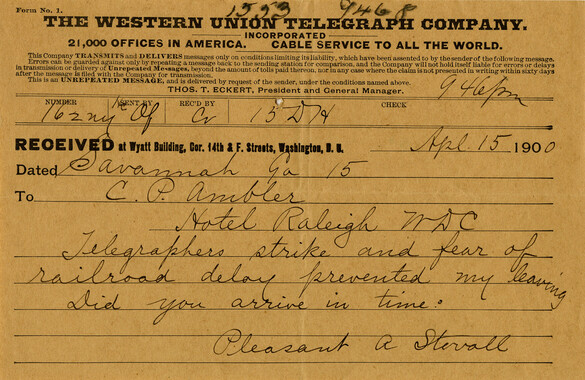 Form No. 1.
1553 9468
THE WESTERN UNION TELEGRAPH COMPANY.
INCORPORATED
21,000 OFFICES IN AMERICA. CABLE SERVICE TO ALL THE WORLD.
This Company TRANSMITS and DELIVERS messages only on conditions limiting its liability, which have been assented to by the sender of the following message.
Errors can be guarded against only by repeating a message back to the sending station for comparison, and the Company will not hold itself liable for errors or delays
in transmission or delivery of Unrepeated Messages, beyond the amount of tolls paid thereon, nor in any case where the claim is not presented in writing within sixty days
after the message is filed with the Company for transmission.
This is an UNREPEATED MESSAGE, and is delivered by request of the sender, under the conditions named above.
THOS. T. ECKERT, President and General Manager.
946pm
NUMBER SENT BY REC'D BY CHECK
Of Cr 15 DH
RECEIVED at Wyatt Building, Cor. 14th & F. Streets, Washington, D. C. Apl. 15 1900
Dated Savannah Ga 15
To C. P. Ambler
Hotel Raleigh WDC
Telegraphers strike and fear of
railroad delay prevented my leaving
Did you arrive in time?
Pleasant A Stovall